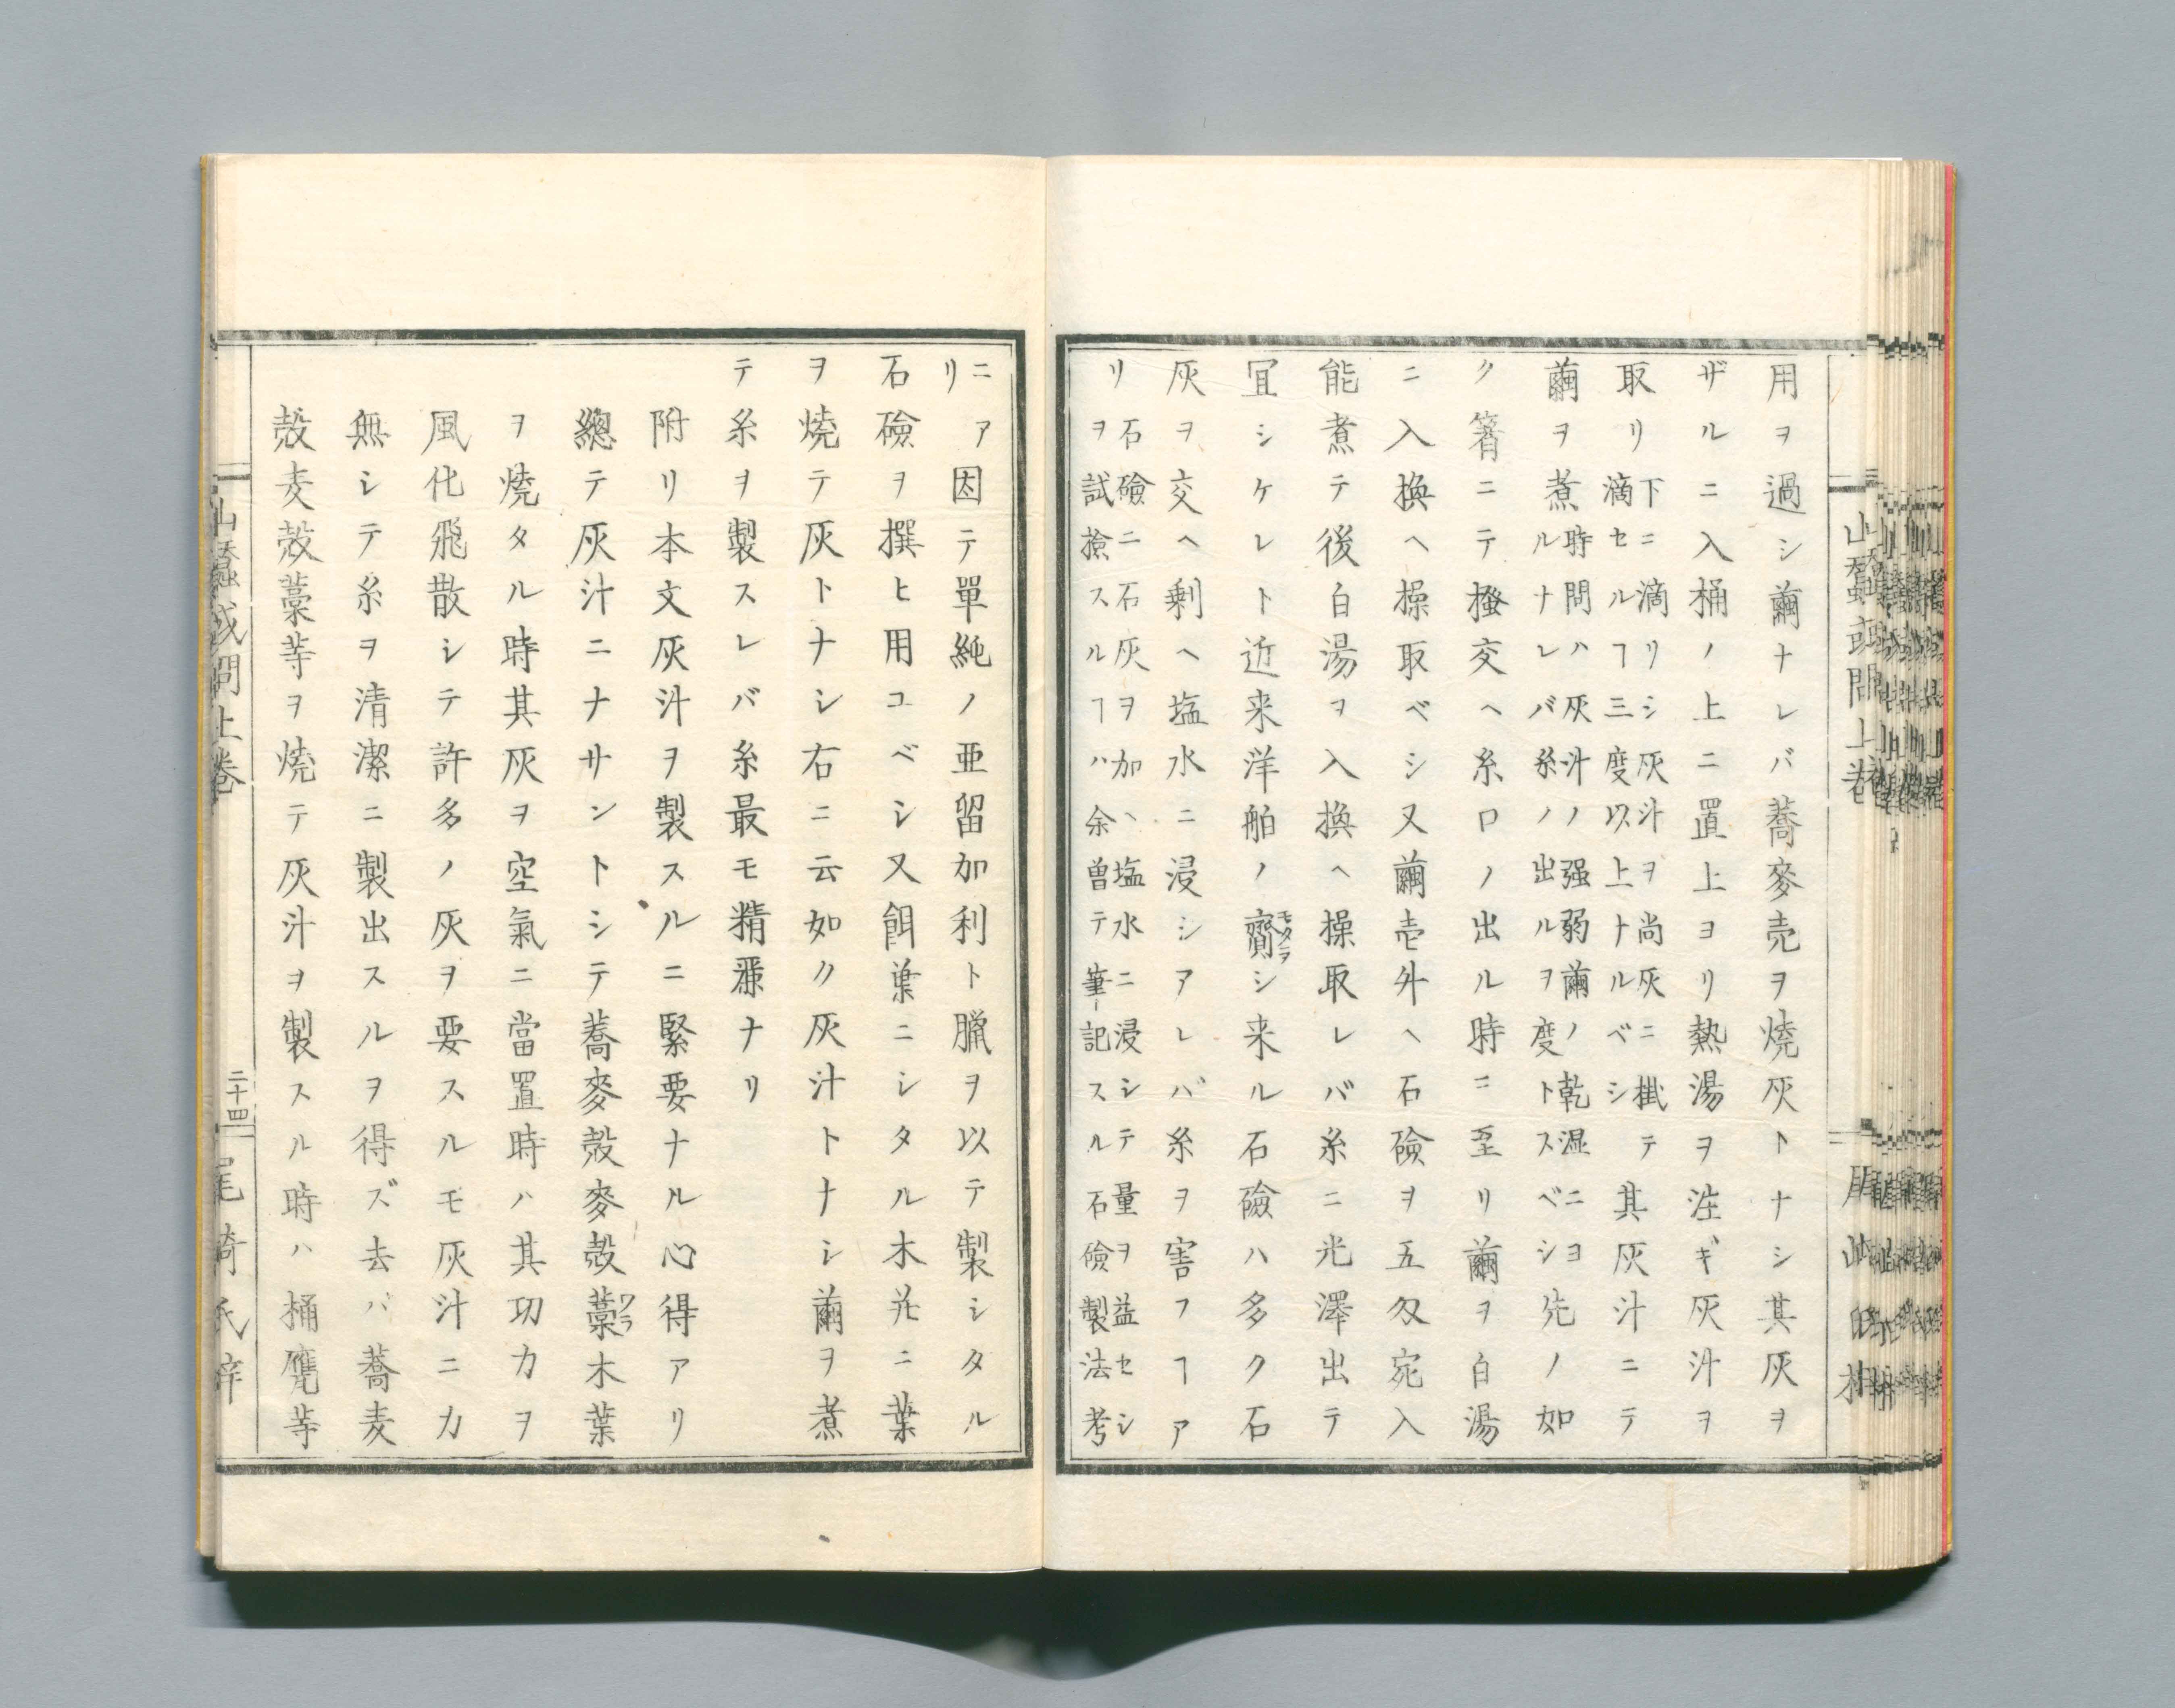 用ヲ過シ繭ナレバ蕎麥売ヲ燒灰トナシ其灰ヲ
ザルニ入桶ノ上ニ置上ヨリ熱湯ヲ注ギ灰汁ヲ
取リ下ニ滴リシ灰汁ヲ尚灰ニ掛テ
滴セルヿ三度以上トナルベシ其灰汁ニテ
繭ヲ煮時間ハ灰汁ノ强弱繭ノ乾湿ニヨ
ルナレバ糸ノ出ルヲ度トスベシ先ノ如
ク箸ニテ掻交ヘ糸口ノ出ル時ニ至リ繭ヲ白湯
ニ入換ヘ操取ベシ又繭壱舛ヘ石鹸ヲ五匁宛入
能煮テ後白湯ヲ入換ヘ操取レバ糸ニ光澤出テ
冝シケレト近来洋舶ノ齎モタラシ来ル石鹸ハ多ク石
灰ヲ交ヘ剰ヘ塩水ニ浸シアレバ糸ヲ害フヿア
リ石鹸ニ石灰ヲ加ヘ塩水ニ浸シテ量ヲ益セシ
ヲ試撿スルヿハ余曽テ筆記スル石鹸製法考
ニア
リ因テ單純ノ亜留加利ト臘ヲ以テ製シタル
石鹸ヲ撰ヒ用ユベシ又餌葉ニシタル木茈ニ葉
ヲ燒テ灰トナシ右ニ云如ク灰汁トナシ繭ヲ煮
テ糸ヲ製スレバ糸最モ精ナリ
附リ本文灰汁ヲ製スルニ緊要ナル心得アリ
總テ灰汁ニナサントシテ蕎麥殼麥殼藁ワラ木葉
ヲ燒タル時其灰ヲ空氣ニ當置時ハ其功カヲ
風化飛散シテ許多ノ灰ヲ要スルモ灰汁ニカ
無シテ糸ヲ清潔ニ製出スルヲ得ズ去バ蕎麦
殼麦殼藁等ヲ燒テ灰汁ヲ製スル時ハ桶甕等
山蠶或問上巻
二十四
尾崎氏梓